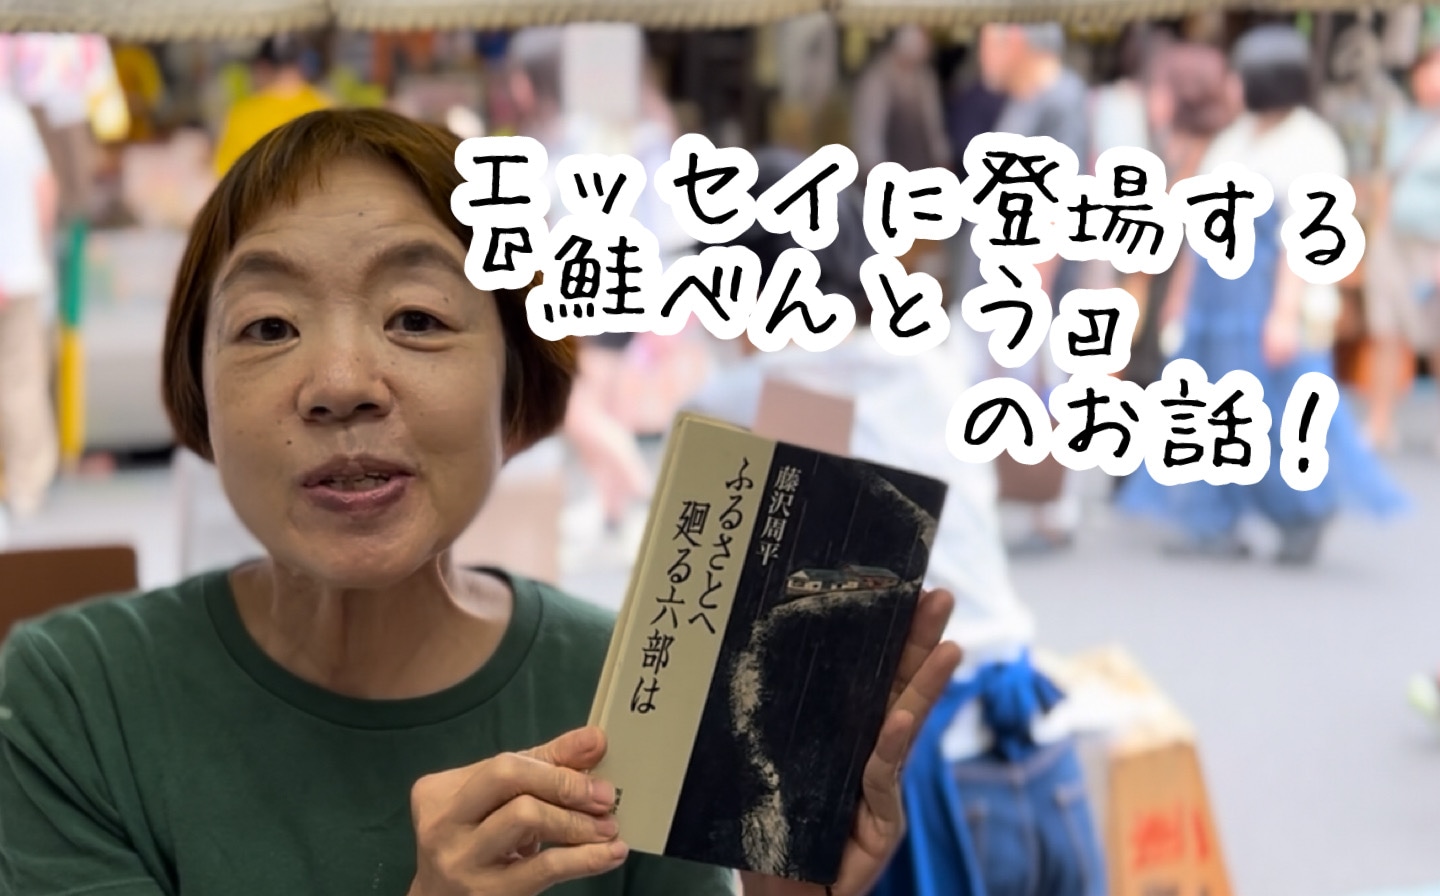 エッセイに登場する
『鮭べんとう』
のお話！
藤沢周平
ふるさとへ
廻る六部は